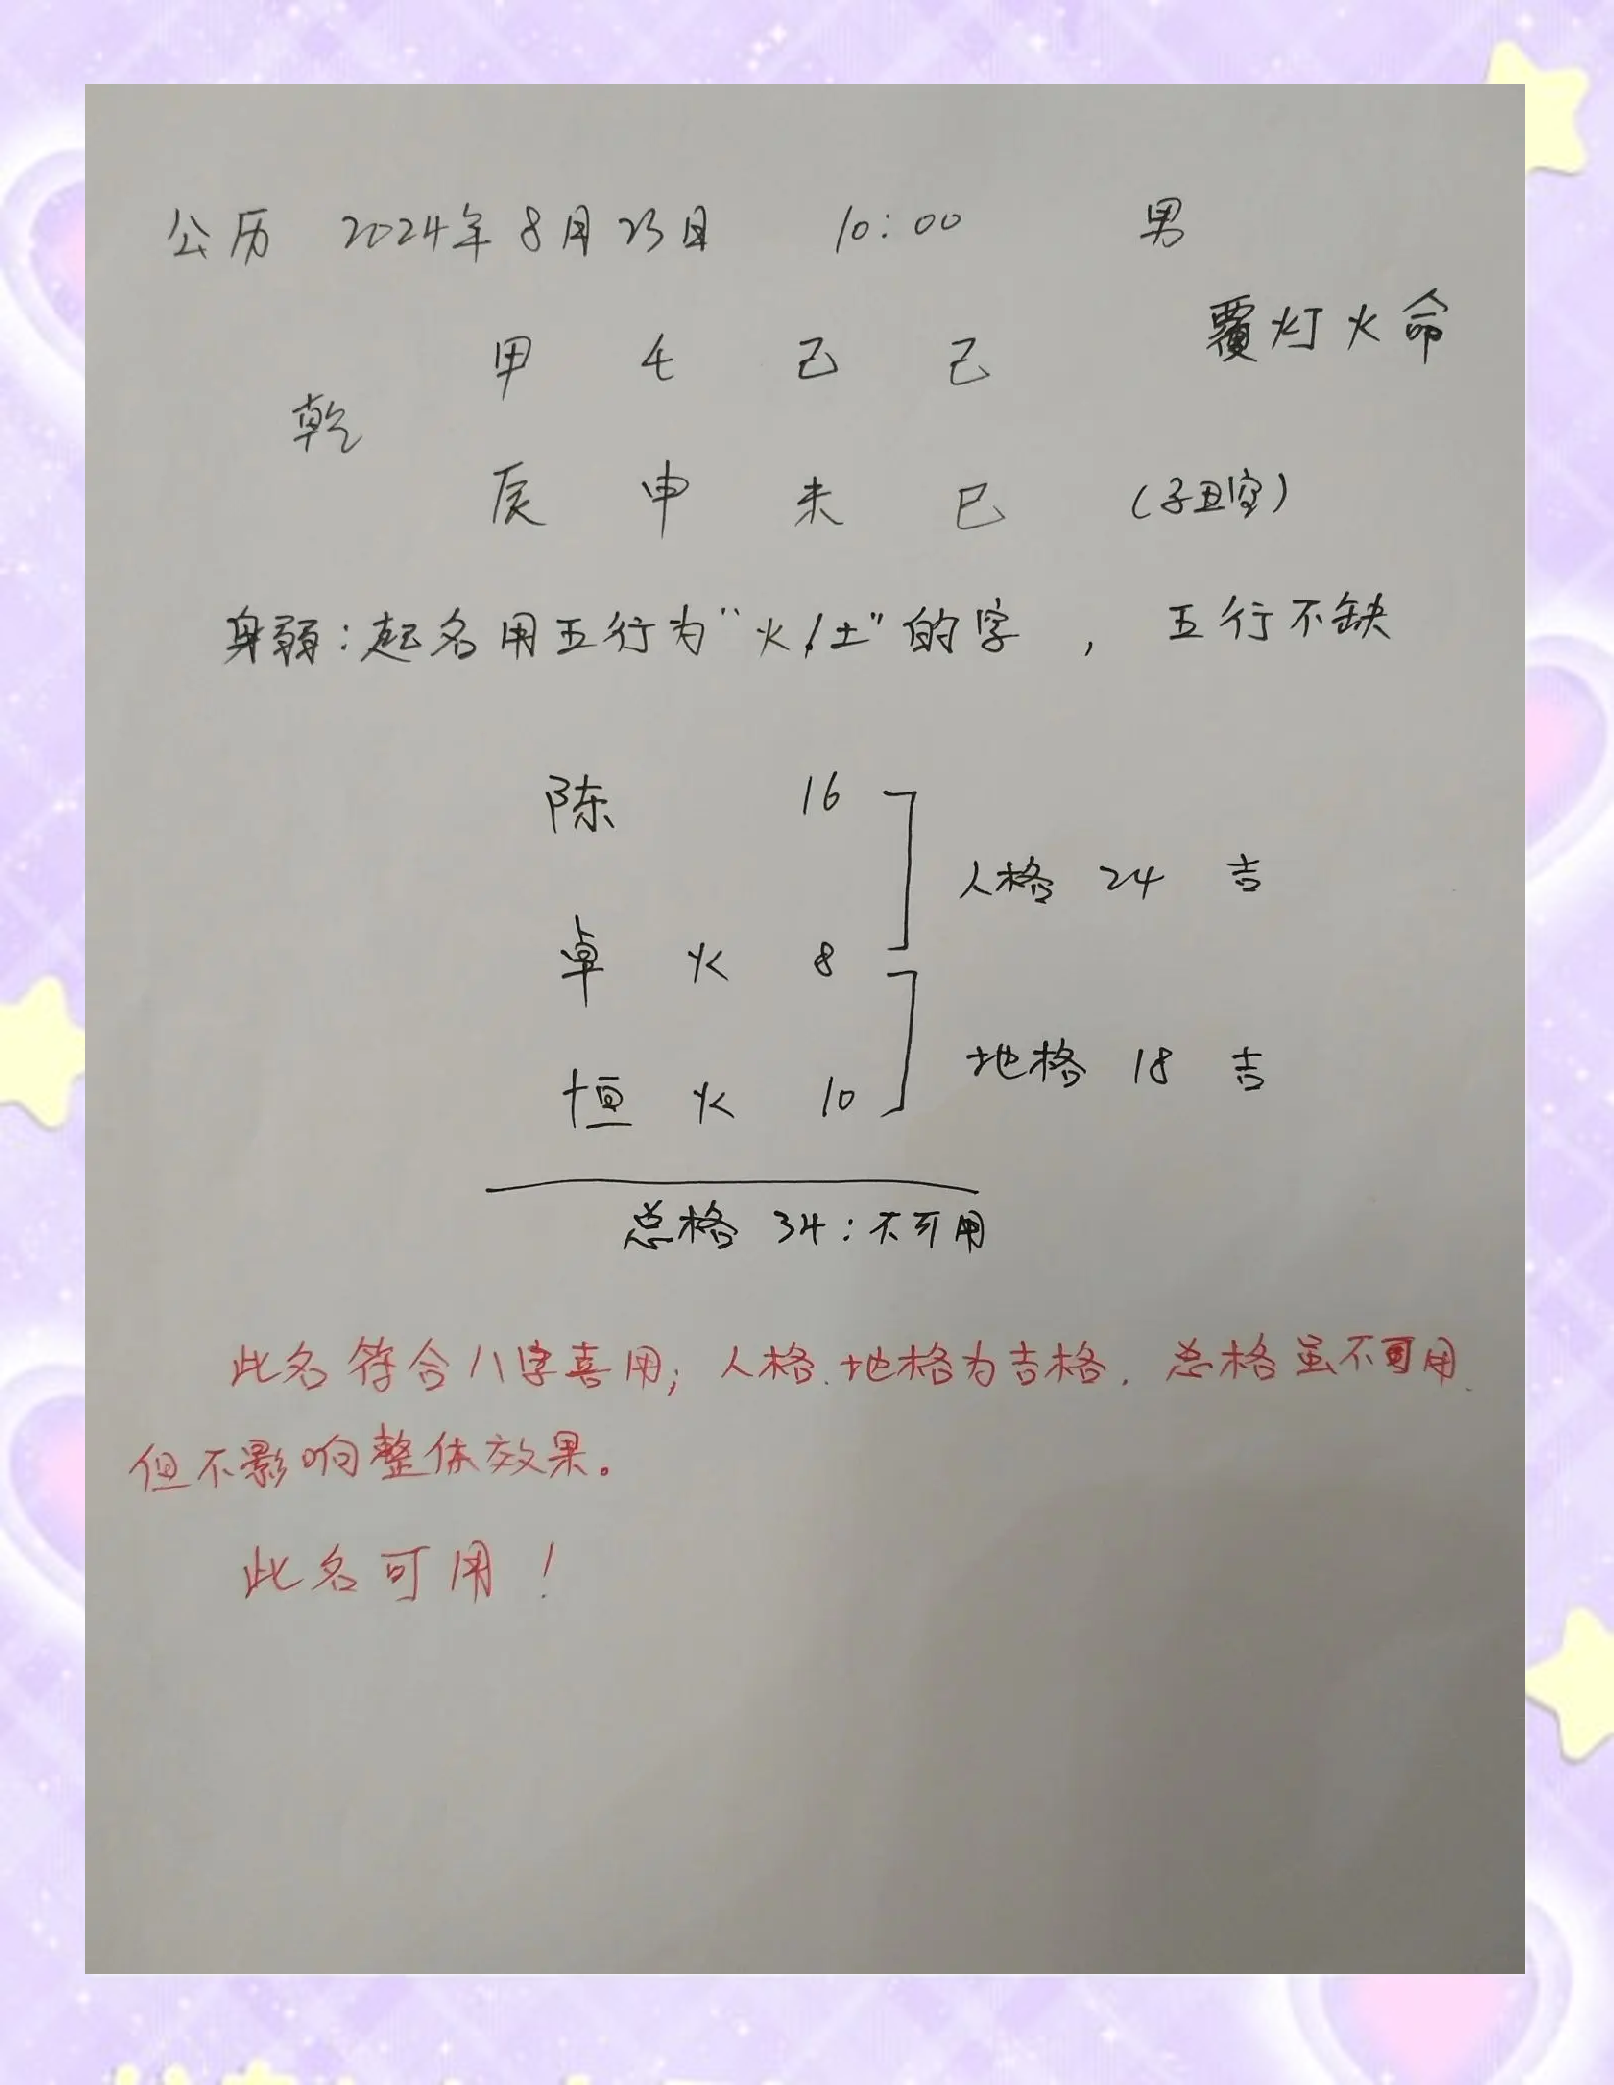 公历 2024年8月23日 10:00 男
覆灯火命
甲 壬 己 己
乾
辰 申 未 巳 (子丑空)
身弱:起名用五行为"火/土"的字, 五行不缺
陈 16
人格 24 吉
卓 火 8
地格 18 吉
恒 火 10
总格 34:不可用
此名符合八字喜用;人格.地格为吉格.总格虽不可用.
但不影响整体效果。
此名可用!